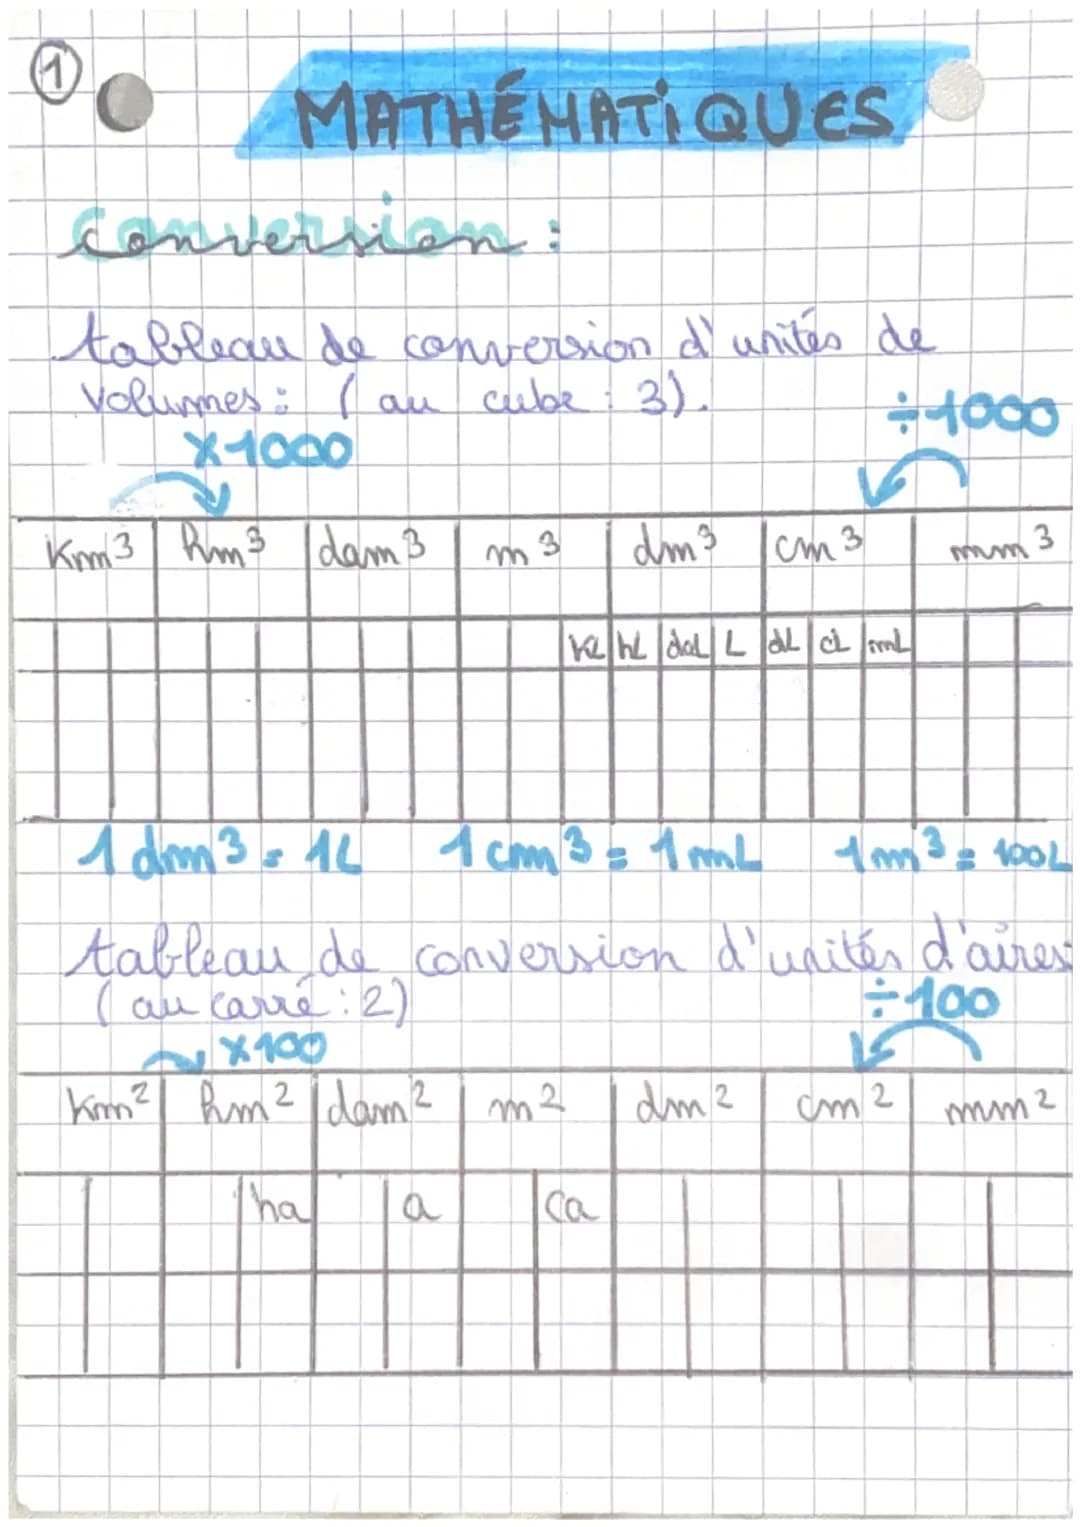 1
MATHÉMATiQUES
conversion :
tableau de conversion d'unités de
volumes : (au cube : 3).
÷1000
x1000
Km3 hm3 dam3 m3 dm3 cm3 mm3
KL hL daL L dL cL mL
1 dm3 = 1L 1 cm3 = 1 mL 1 m3 = 100L
tableau de conversion d'unités d'aires
(au carré : 2)
÷100
x100
Km2 hm2 dam2 m2 dm2 cm2 mm2
ha a ca